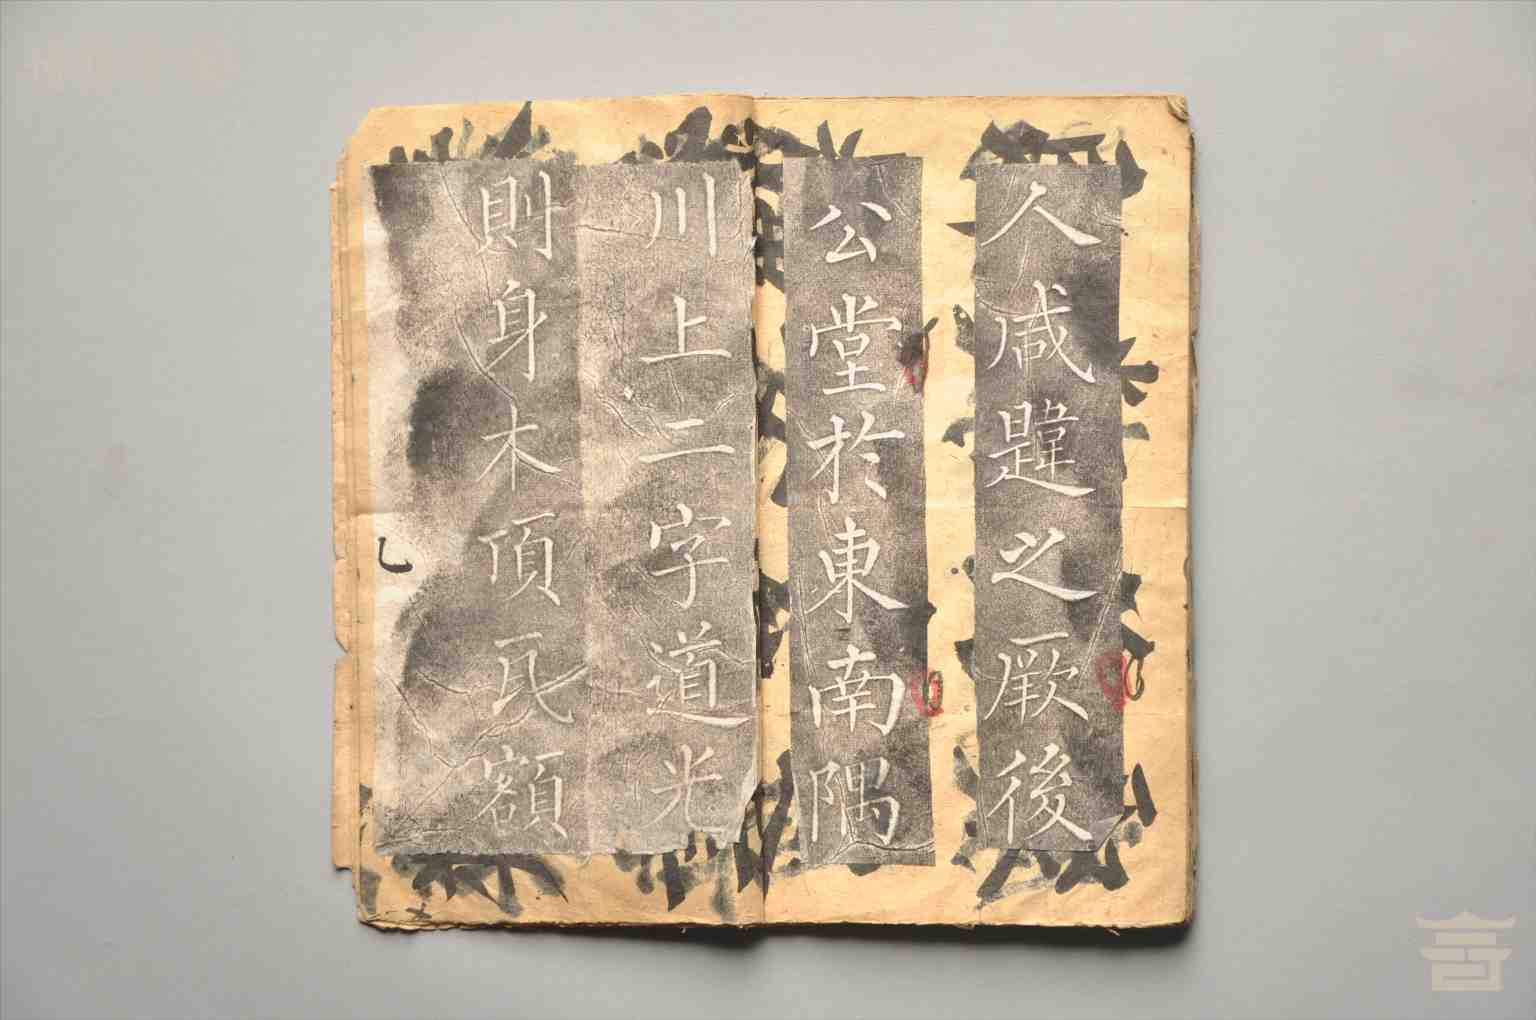 人咸韙之厥後
公堂於東南隅
川上二字道光
則身木頂瓦額